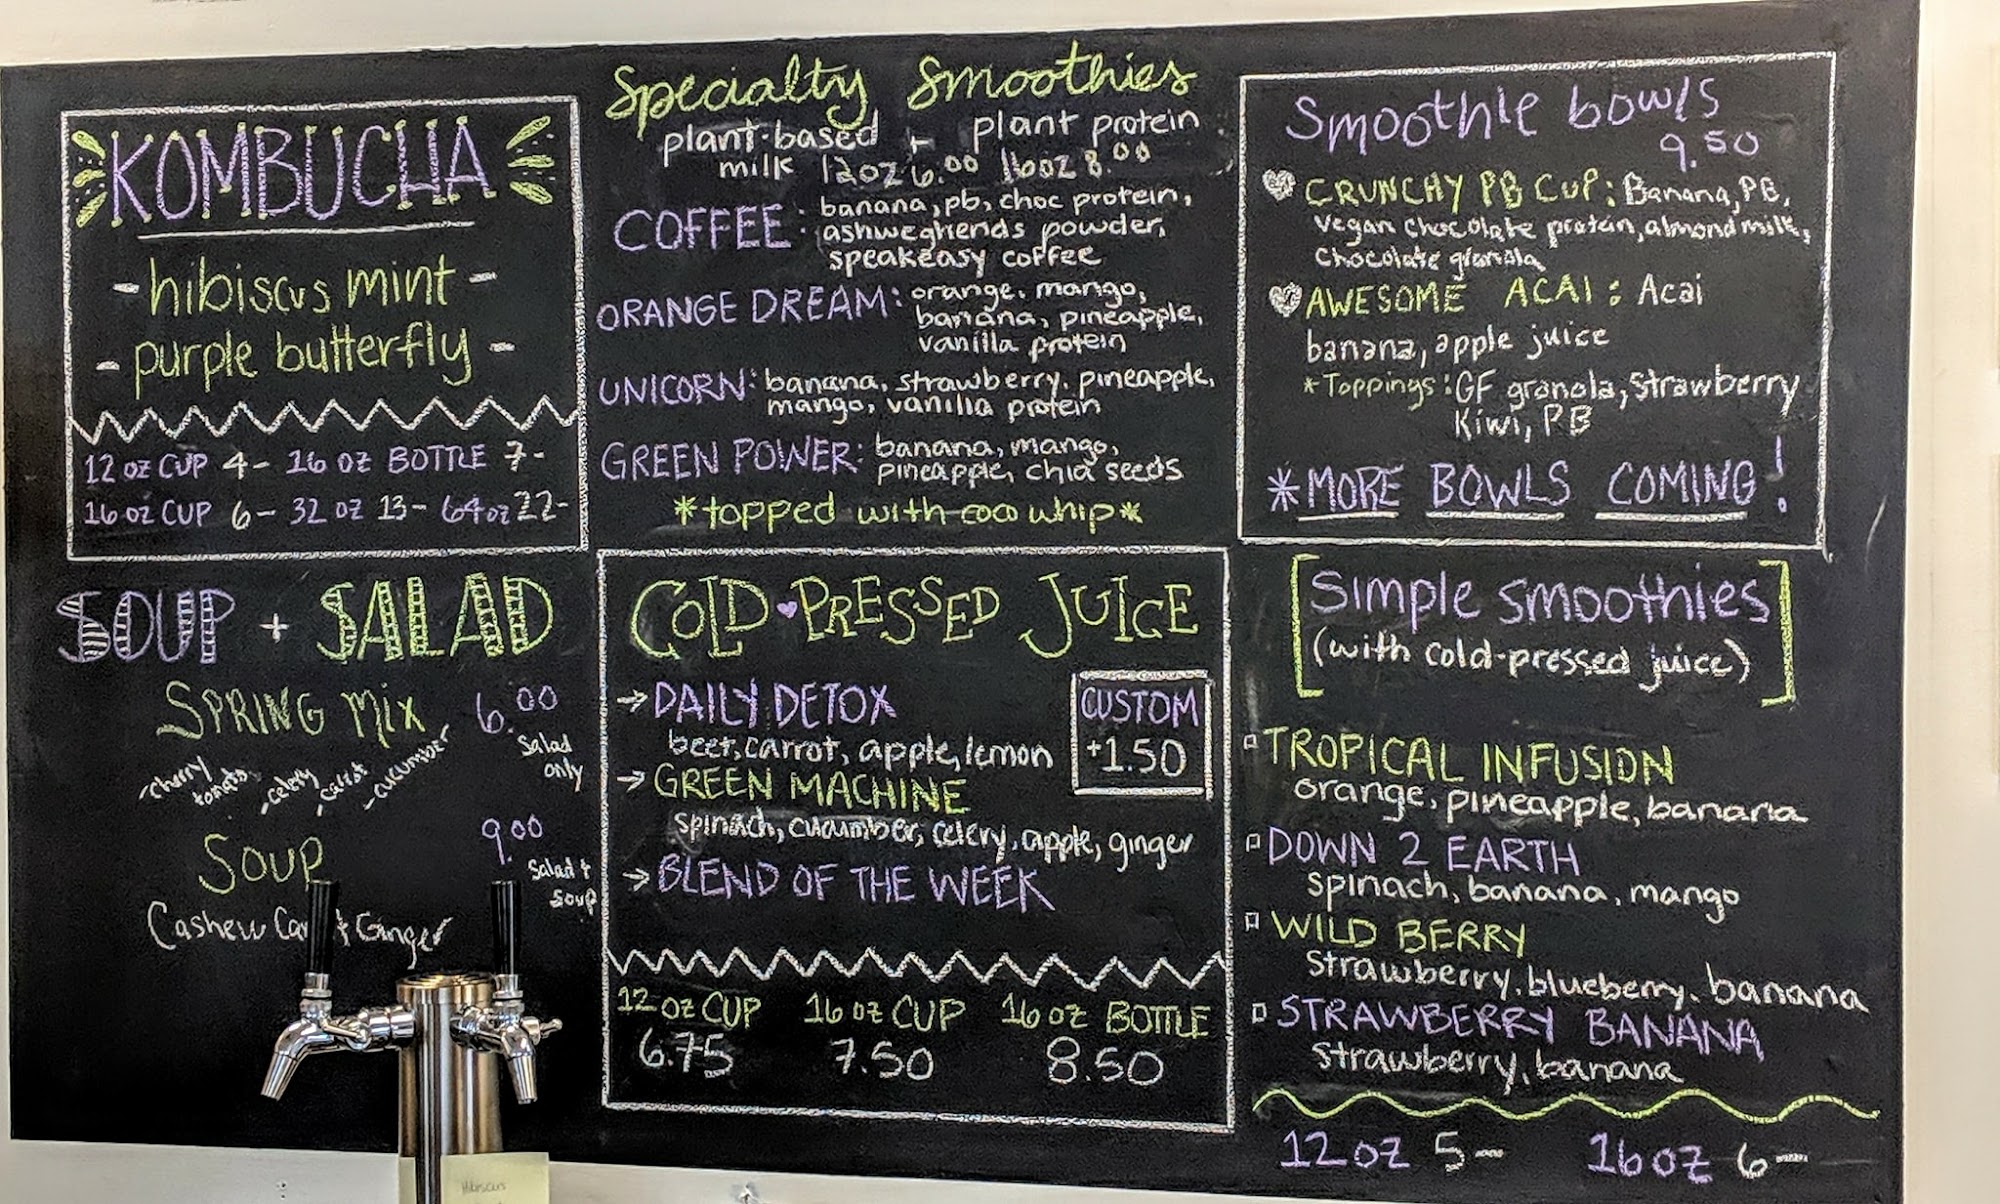 KOMBUCHA
- hibiscus mint -
- purple butterfly -
12 oz CUP 4- 16 oz BOTTLE 7-
16 oz CUP 6- 32 oz 13- 64 oz 22-
SOUP + SALAD
SPRING MIX 6.00
Salad
only
-cherry
-celery
-cucumber
SOUP 9.00
Salad +
Soup
Cashew + Ginger
Specialty Smoothies
plant-based + plant protein
milk 12oz 6.00 16oz 8.00
COFFEE: banana, pb, choc protein,
ashweghends powder,
speakeasy coffee
ORANGE DREAM: orange, mango,
banana, pineapple,
vanilla protein
UNICORN: banana, strawberry, pineapple,
mango, vanilla protein
GREEN POWER: banana, mango,
pineapple, chia seeds
*topped with coco whip*
COLD-PRESSED JUICE
→ DAILY DETOX
beet, carrot, apple, lemon
→ GREEN MACHINE
spinach, cucumber, celery, apple, ginger
→ BLEND OF THE WEEK
CUSTOM
+1.50
12 oz CUP 16 oz CUP 16 oz BOTTLE
6.75 7.50 8.50
Smoothie bowls
9.50
CRUNCHY PB CUP: Banana, PB,
vegan chocolate protein, almond milk,
chocolate granola
AWESOME ACAI: Acai
banana, apple juice
*Toppings: GF granola, Strawberry
Kiwi, PB
*MORE BOWLS COMING!
[Simple smoothies]
(with cold-pressed juice)
TROPICAL INFUSION
orange, pineapple, banana
DOWN 2 EARTH
spinach, banana, mango
WILD BERRY
strawberry, blueberry, banana
STRAWBERRY BANANA
strawberry, banana
12oz 5- 16oz 6-
Hibiscus